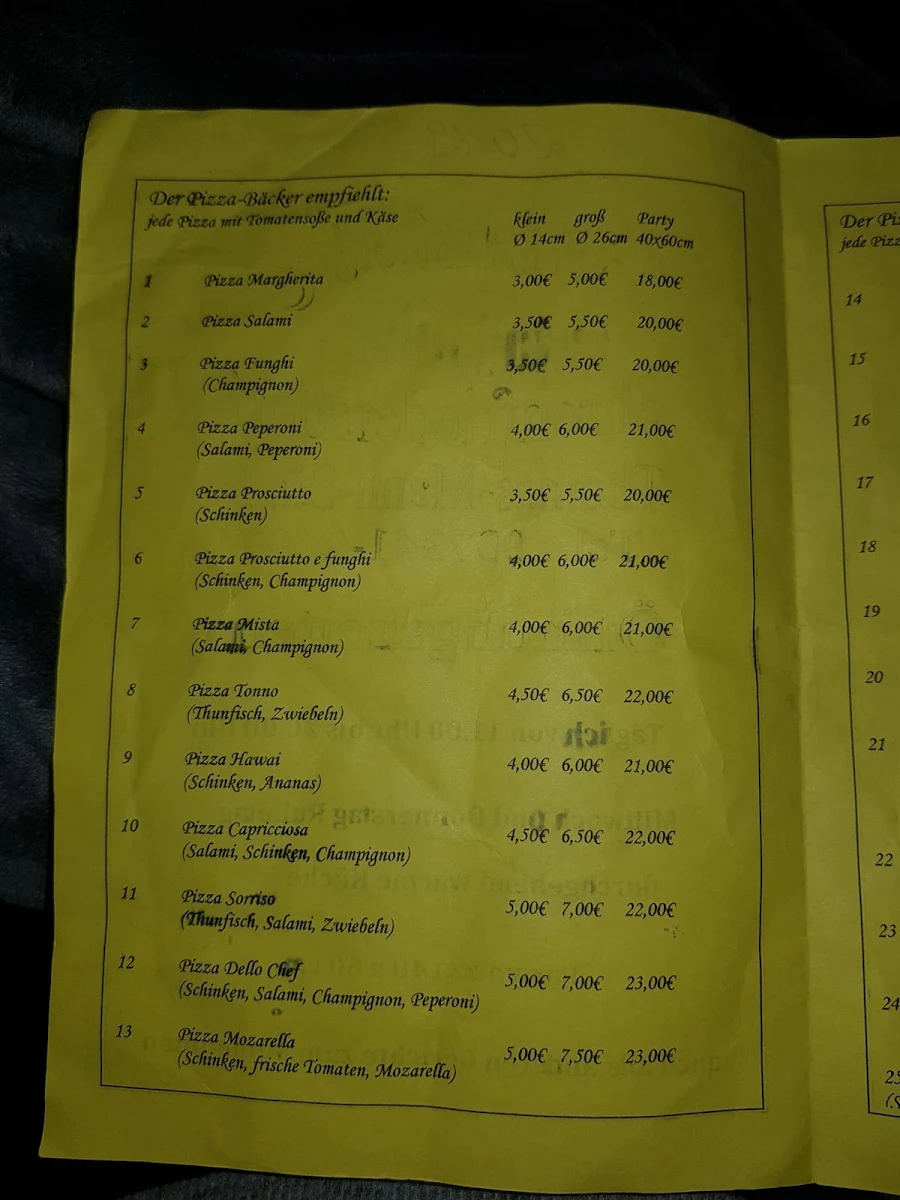 Der Pizza-Bäcker empfiehlt:
jede Pizza mit Tomatensoße und Käse
klein groß Party
Ø 14cm Ø 26cm 40x60cm
1 Pizza Margherita 3,00€ 5,00€ 18,00€
2 Pizza Salami 3,50€ 5,50€ 20,00€
3 Pizza Funghi 3,50€ 5,50€ 20,00€
(Champignon)
4 Pizza Peperoni 4,00€ 6,00€ 21,00€
(Salami, Peperoni)
5 Pizza Prosciutto 3,50€ 5,50€ 20,00€
(Schinken)
6 Pizza Prosciutto e funghi 4,00€ 6,00€ 21,00€
(Schinken, Champignon)
7 Pizza Mista 4,00€ 6,00€ 21,00€
(Salami, Champignon)
8 Pizza Tonno 4,50€ 6,50€ 22,00€
(Thunfisch, Zwiebeln)
9 Pizza Hawai 4,00€ 6,00€ 21,00€
(Schinken, Ananas)
10 Pizza Capricciosa 4,50€ 6,50€ 22,00€
(Salami, Schinken, Champignon)
11 Pizza Sorriso 5,00€ 7,00€ 22,00€
(Thunfisch, Salami, Zwiebeln)
12 Pizza Dello Chef 5,00€ 7,00€ 23,00€
(Schinken, Salami, Champignon, Peperoni)
13 Pizza Mozarella 5,00€ 7,50€ 23,00€
(Schinken, frische Tomaten, Mozarella)
Der Piz
jede Pizz
14
15
16
17
18
19
20
21
22
23
24
25
(S